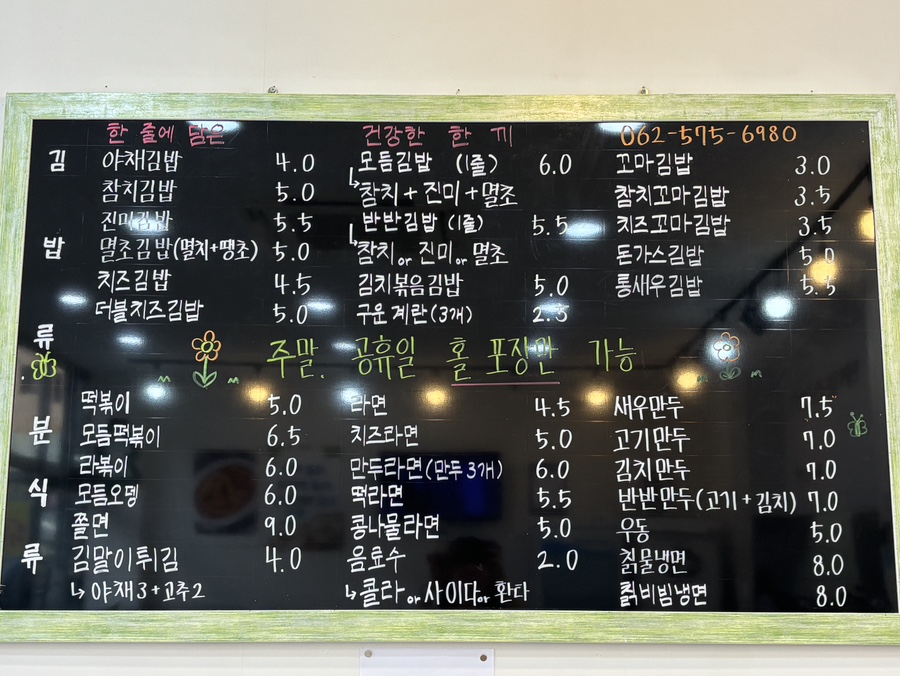 한 줄에 담은 건강한 한 끼 062-575-6980
김밥류
야채김밥 4.0
참치김밥 5.0
진미김밥 5.5
멸초김밥(멸치+땡초) 5.0
치즈김밥 4.5
더블치즈김밥 5.0
모듬김밥 (1줄) 6.0
↳참치+진미+멸초
반반김밥 (1줄) 5.5
↳참치 or 진미 or 멸초
김치볶음김밥 5.0
구운계란(3개) 2.5
꼬마김밥 3.0
참치꼬마김밥 3.5
치즈꼬마김밥 3.5
돈가스김밥 5.0
통새우김밥 5.5
주말. 공휴일 홀 포장만 가능
분식류
떡볶이 5.0
모듬떡볶이 6.5
라볶이 6.0
모듬오뎅 6.0
쫄면 9.0
김말이튀김 4.0
↳야채3+고추2
라면 4.5
치즈라면 5.0
만두라면(만두3개) 6.0
떡라면 5.5
콩나물라면 5.0
음료수 2.0
↳콜라 or 사이다 or 환타
새우만두 7.5
고기만두 7.0
김치만두 7.0
반반만두(고기+김치) 7.0
우동 5.0
칡물냉면 8.0
칡비빔냉면 8.0